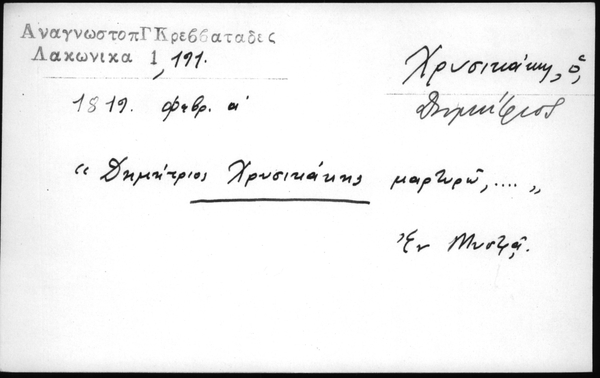 ΑναγνωστοπΓΚρεββαταδες
Λακωνικα 1, 191.
Χρυσικάκη, ὁ,
Δημήτριος
1819. φεβρ. α'
“ Δημήτριος Χρυσικάκης μαρτυρῶ, .... „
Ἐν Μυστρᾷ.